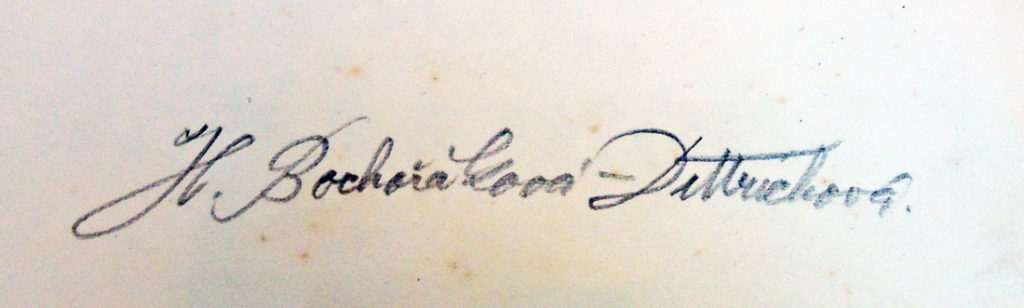 H. Bochořáková-Dittrichová.